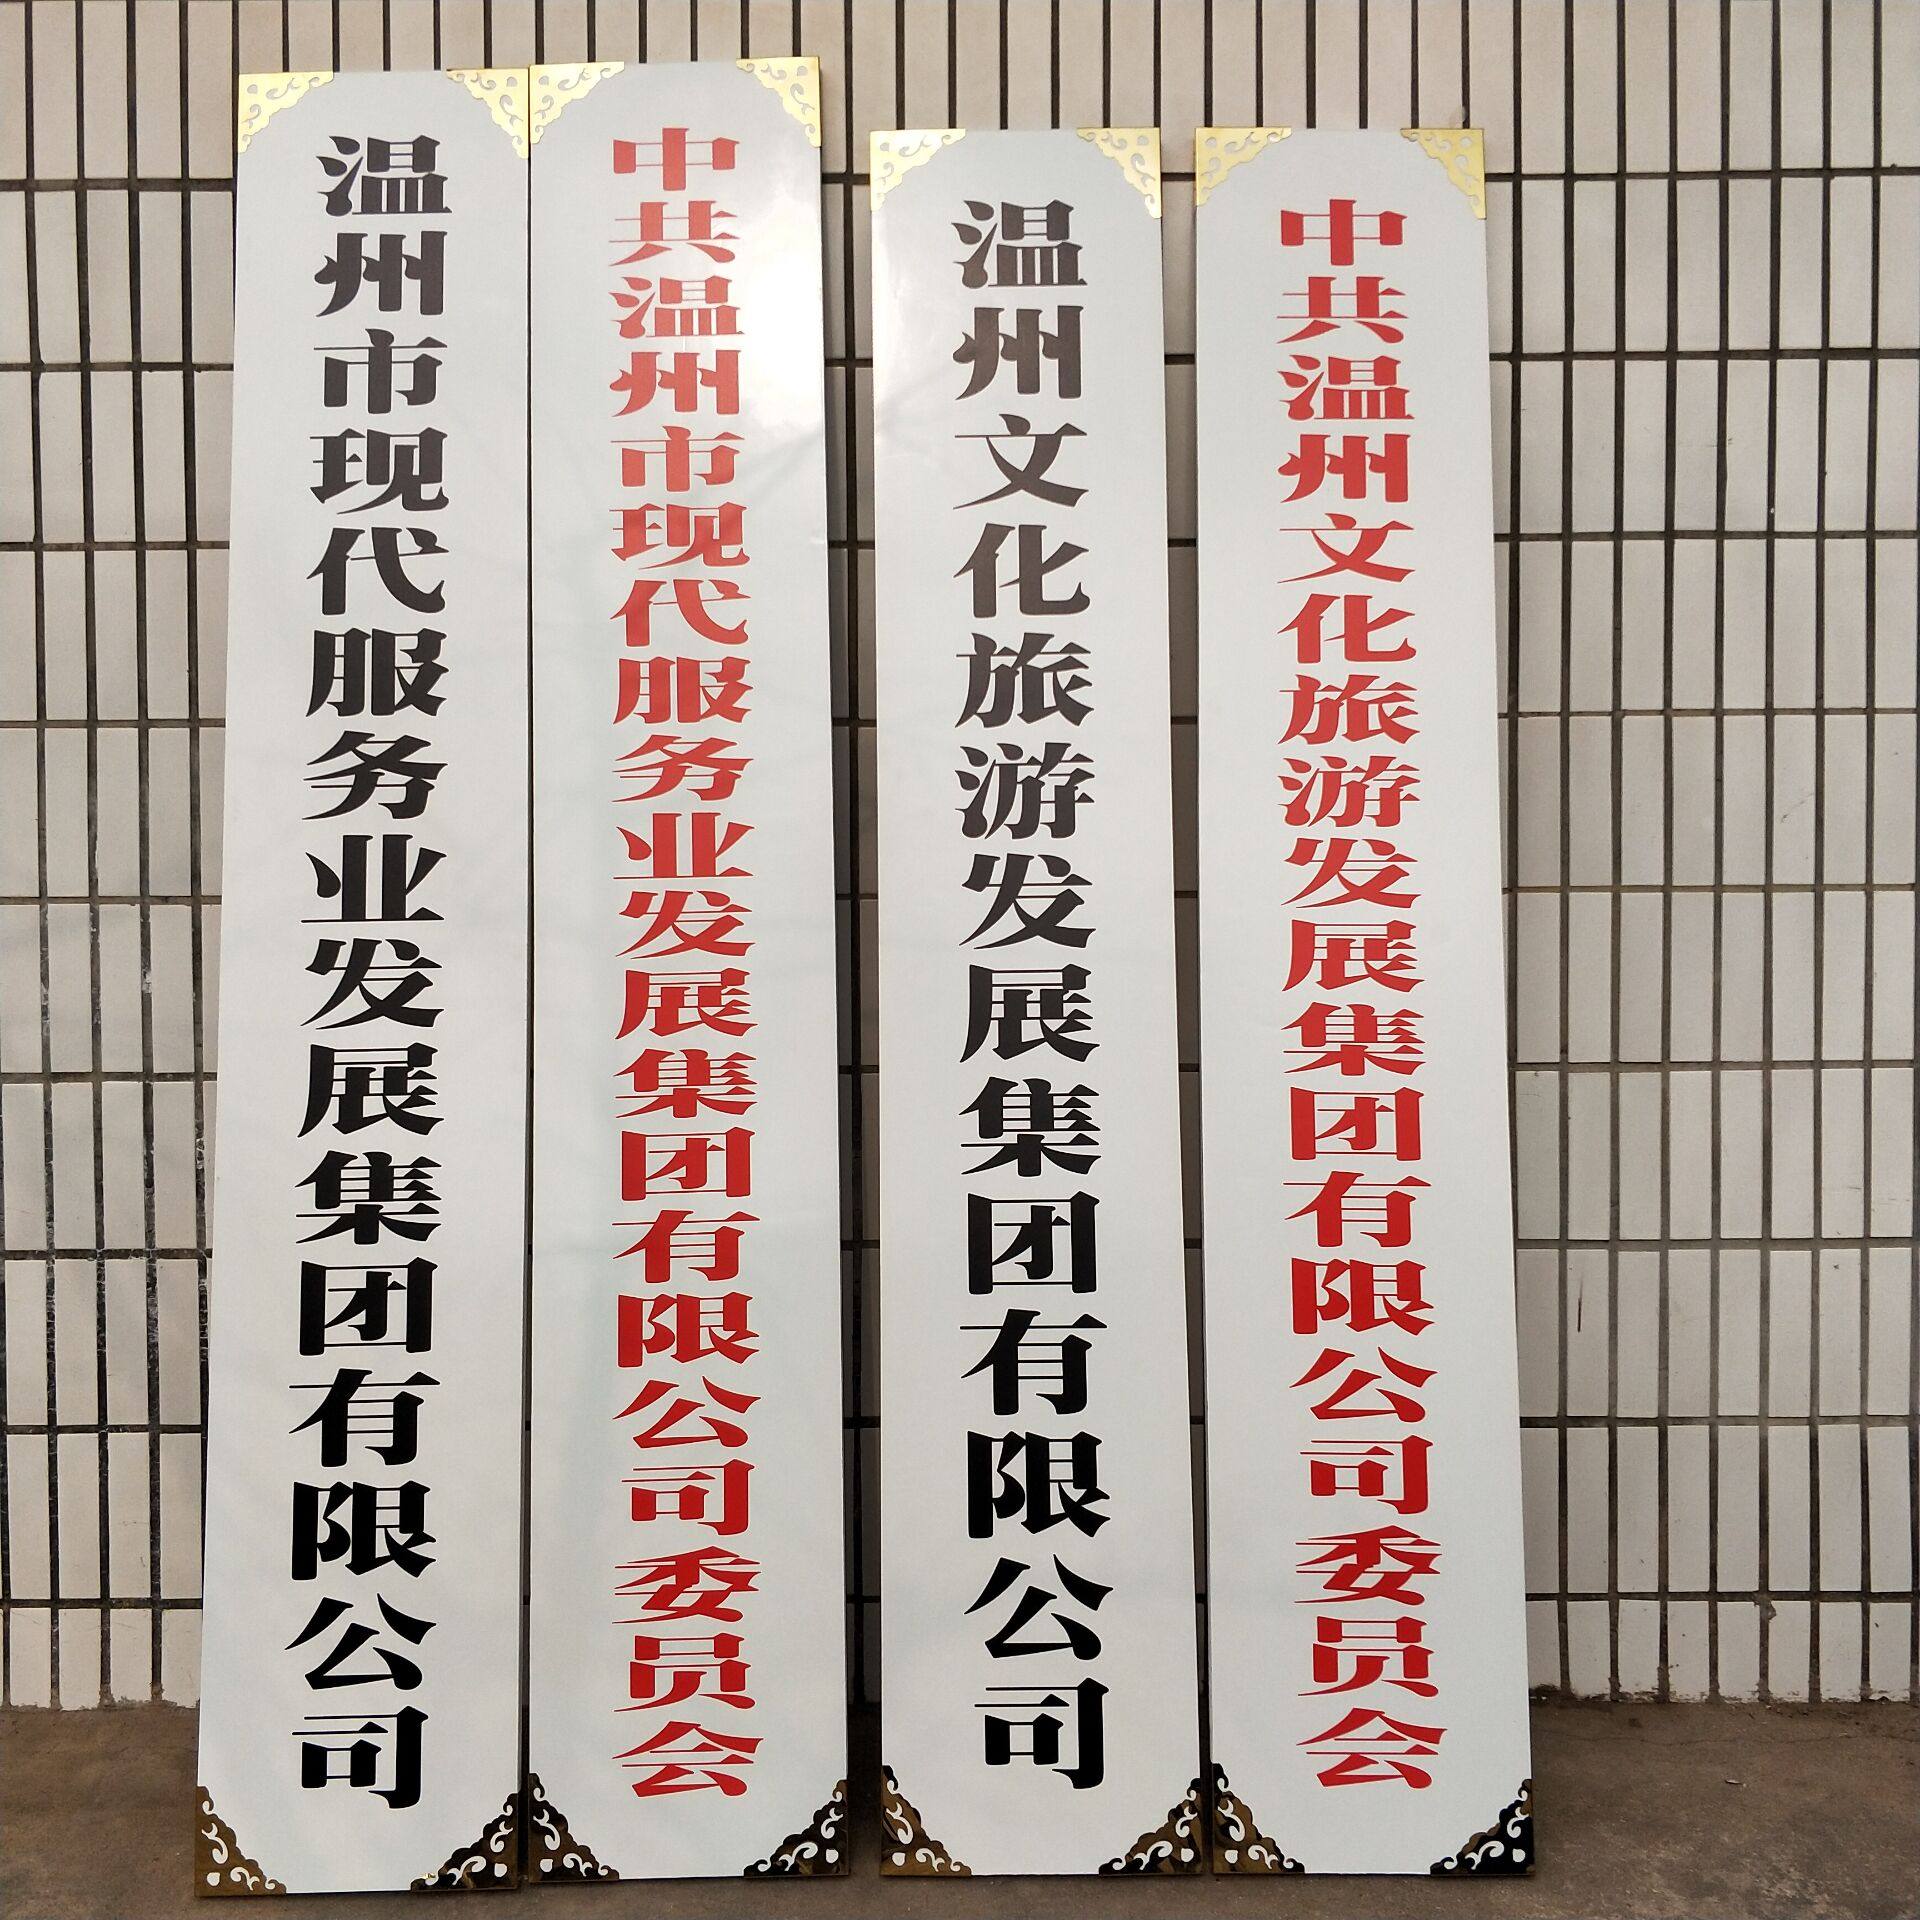 温州市现代服务业发展集团有限公司
中共温州市现代服务业发展集团有限公司委员会
温州文化旅游发展集团有限公司
中共温州文化旅游发展集团有限公司委员会